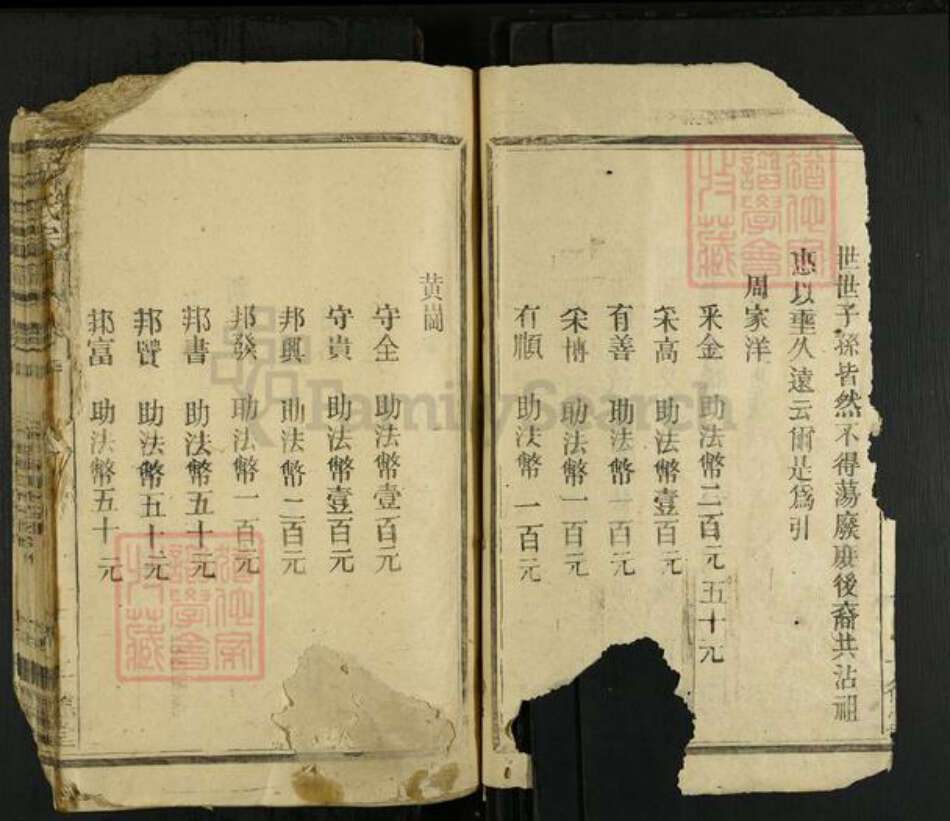 世世子孫皆然不得蕩廢庶後裔共沾祖
惠以垂久遠云爾是爲引
周家洋
采金 助法幣二百元 五十元
采高 助法幣壹百元
有善 助法幣一百元
采博 助法幣一百元
有順 助法幣 一百元
黄崗
守全 助法幣壹百元
守貴 助法幣壹百元
邦興 助法幣二百元
邦發 助法幣一百元
邦書 助法幣五十元
邦賢 助法幣五十元
邦富 助法幣五十元
FamilySearch